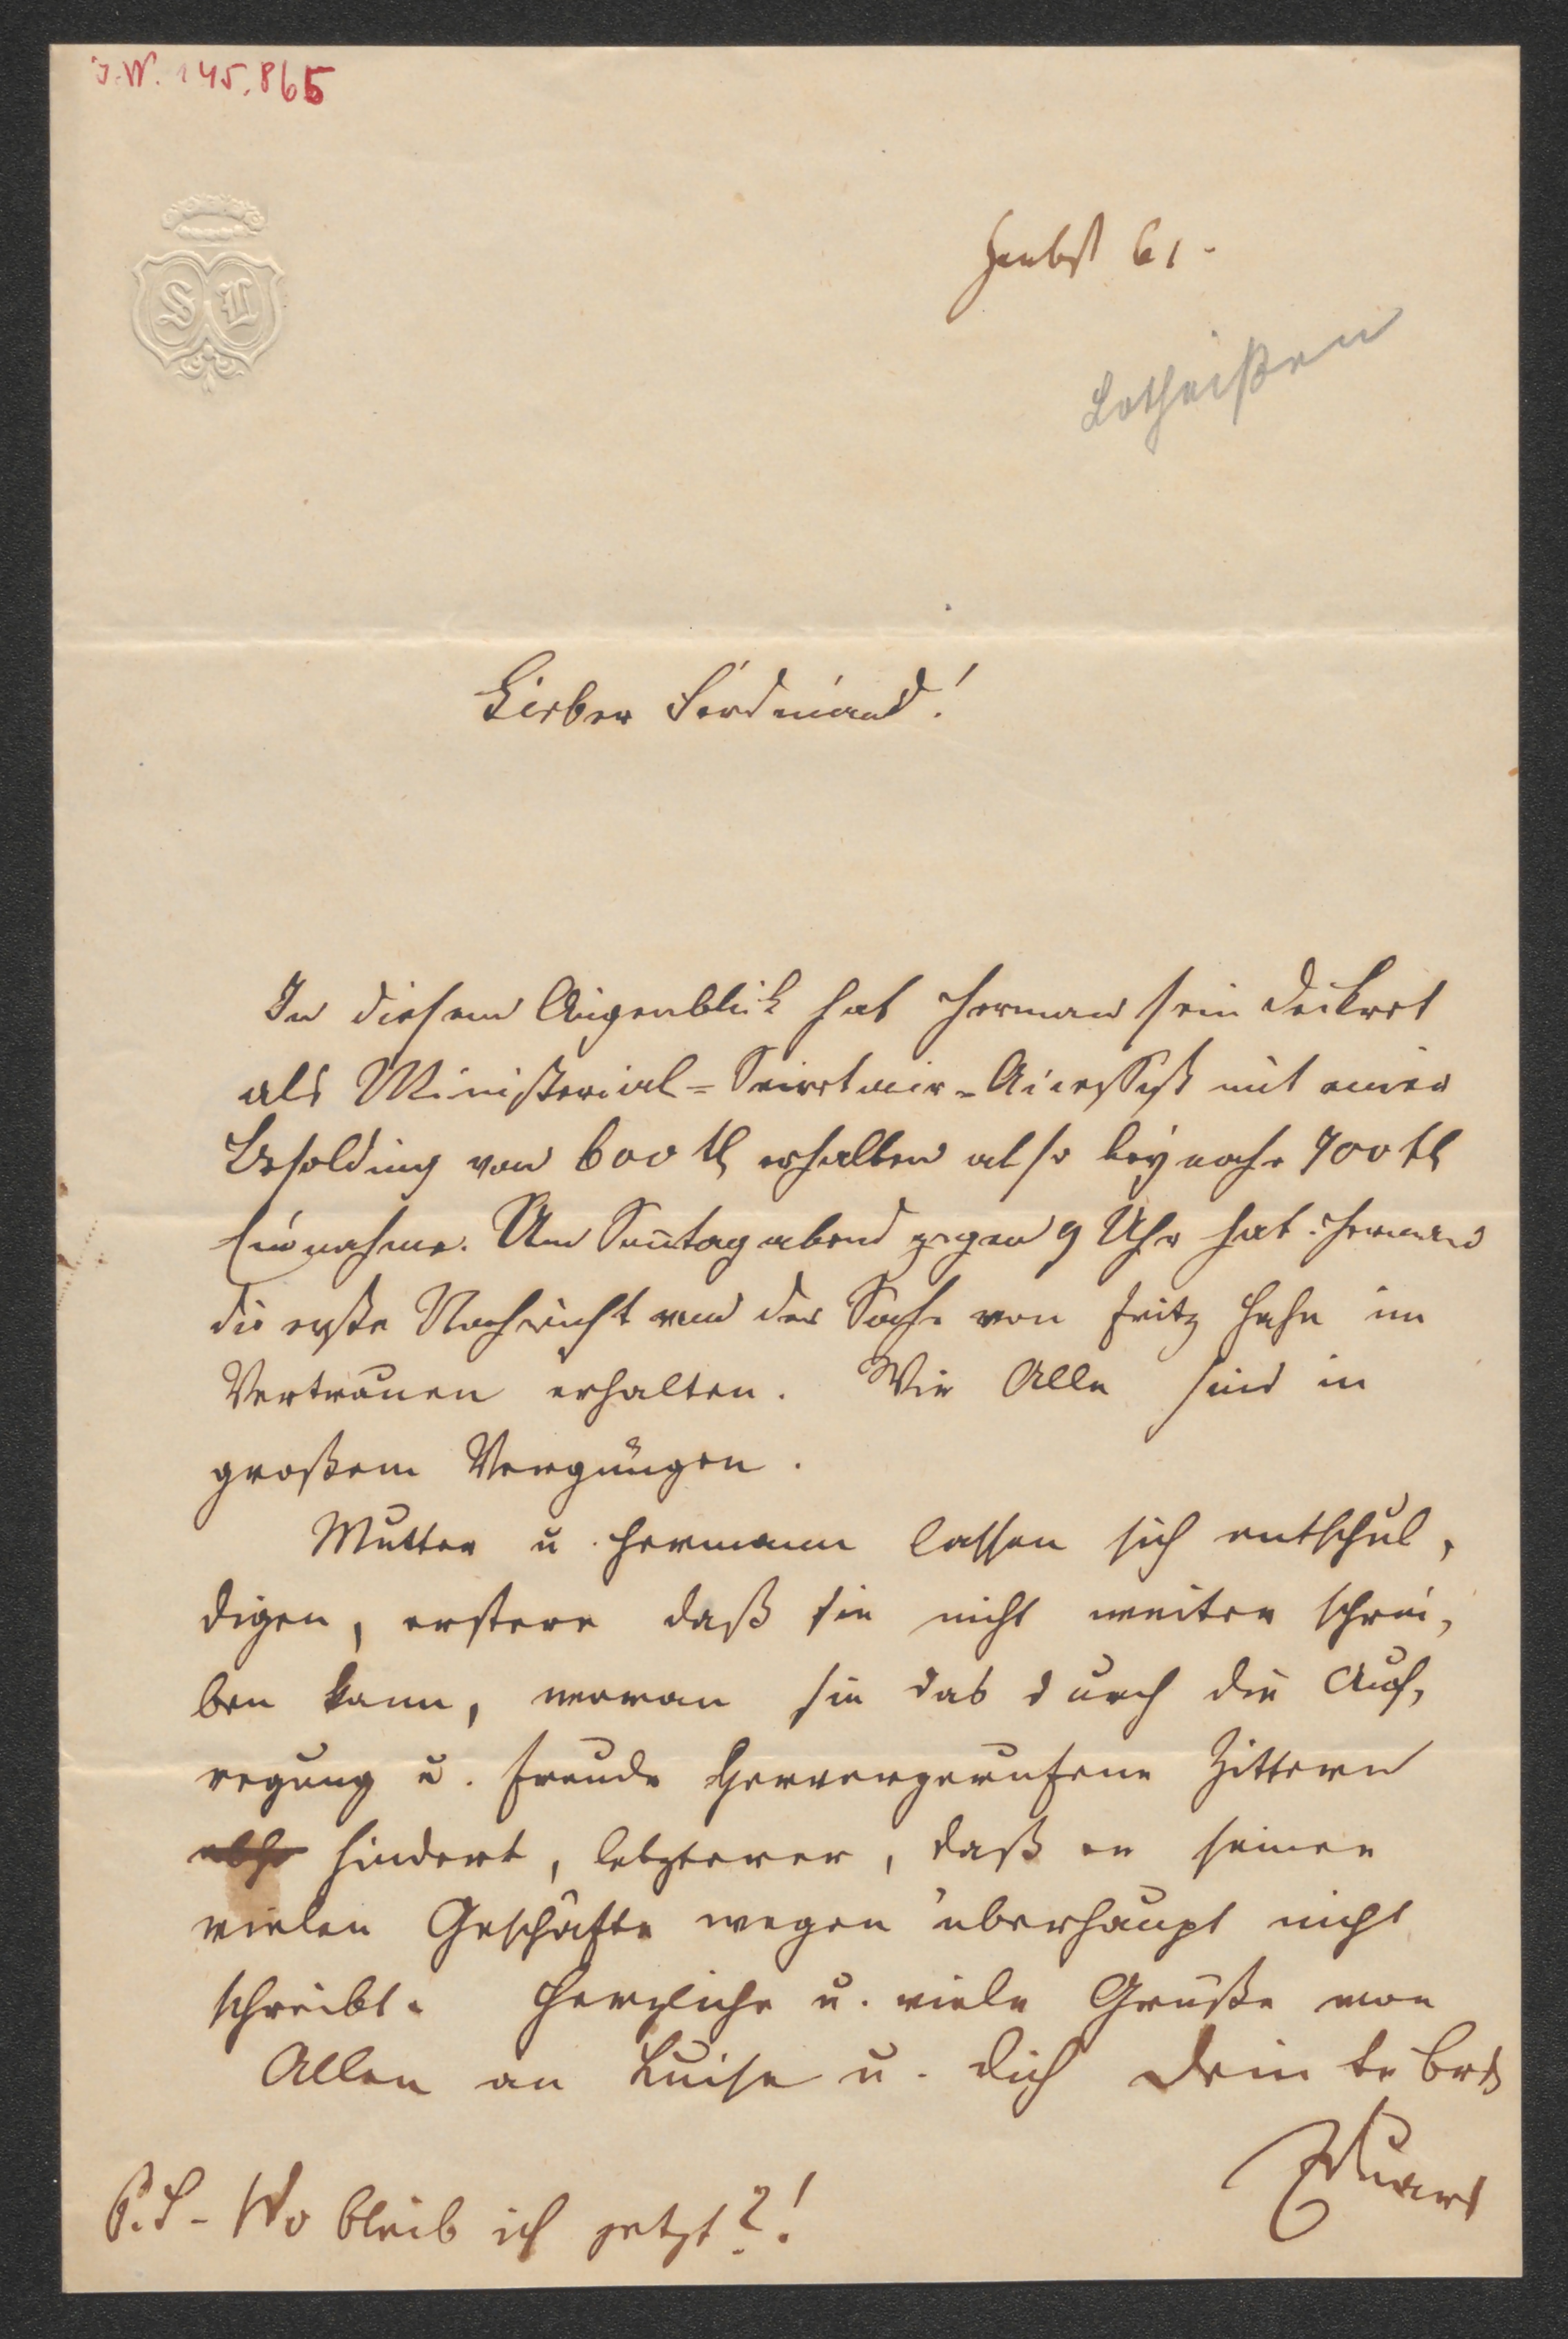 J.N. 145.865
S L
Herbst 61.
Lotheißen
Lieber Ferdinand!
In diesem Augenblick hat Herman sein Deikret
als Ministerial-Secretair-Accessist mit einer
Besoldung von 600 fl erhalten also beynahe 700 fl
Einnahme. Am Sontag abend gegen 9 Uhr hat Herman
die erste Nachricht von der Sache von Fritz Hahn im
Vertrauen erhalten. Wir Alle sind in
großem Vergnügen.
Mutter u. Hermann lassen sich entschul,
digen, erstere daß sie nicht weiter schrei,
ben kann, woran sie das durch die Auf,
regung u. Freude hervorgerufene Zittern
hindert, letzterer, daß er seiner
vielen Geschäfte wegen überhaupt nicht
schreibt. Herzliche u. viele Grüße von
Allen an Luise u. Dich Dein tr Brd
Eduard
P.S- Wo bleib ich jetzt?!